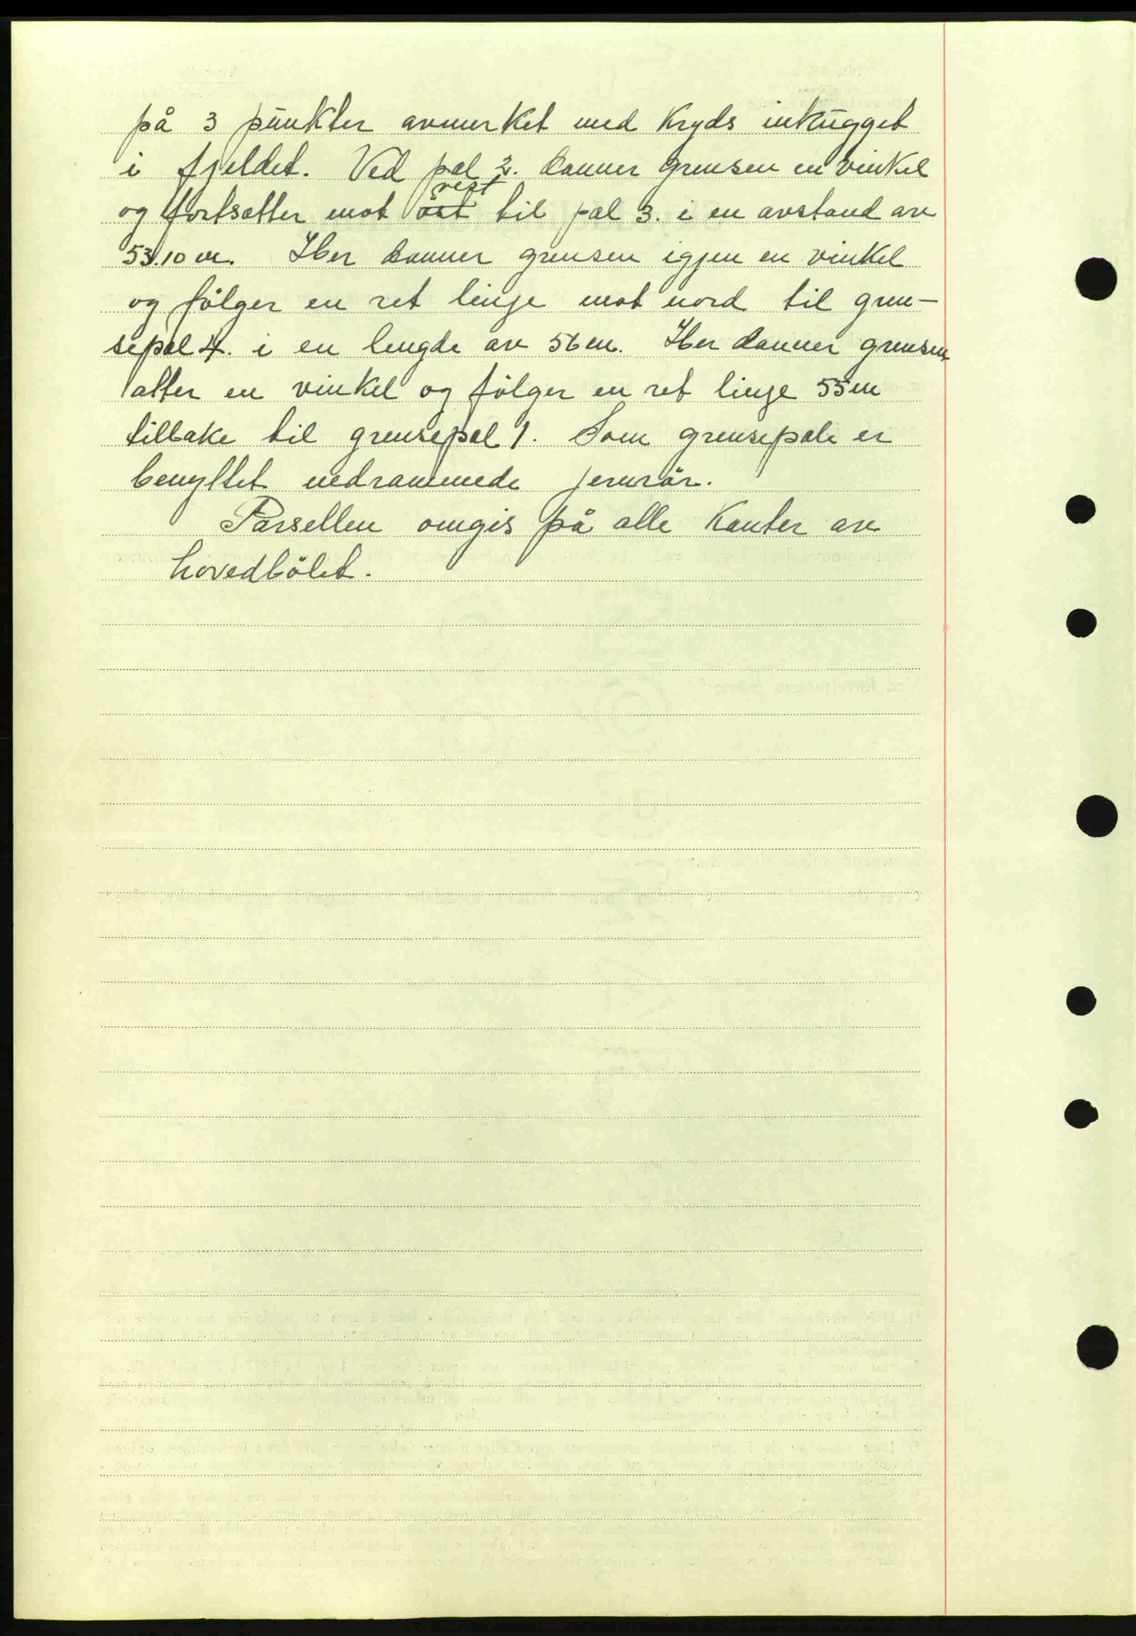 på 3 punkter avmerket med kryds inhugget
i fjeldet. Ved pæl 2. danner grensen en vinkel
og fortsætter mot øst vest til pæl 3. i en avstand av
53.10 m. Her danner grensen igjen en vinkel
og følger en ret linje mot nord til gren-
sepæl 4. i en lengde av 56 m. Her danner grensen
atter en vinkel og følger en ret linje 55 m
tilbake til grensepæl 1. Som grensepæle er
benyttet nedrammede jernrör.
Parsellen omgis på alle kanter av
hovedbölet.